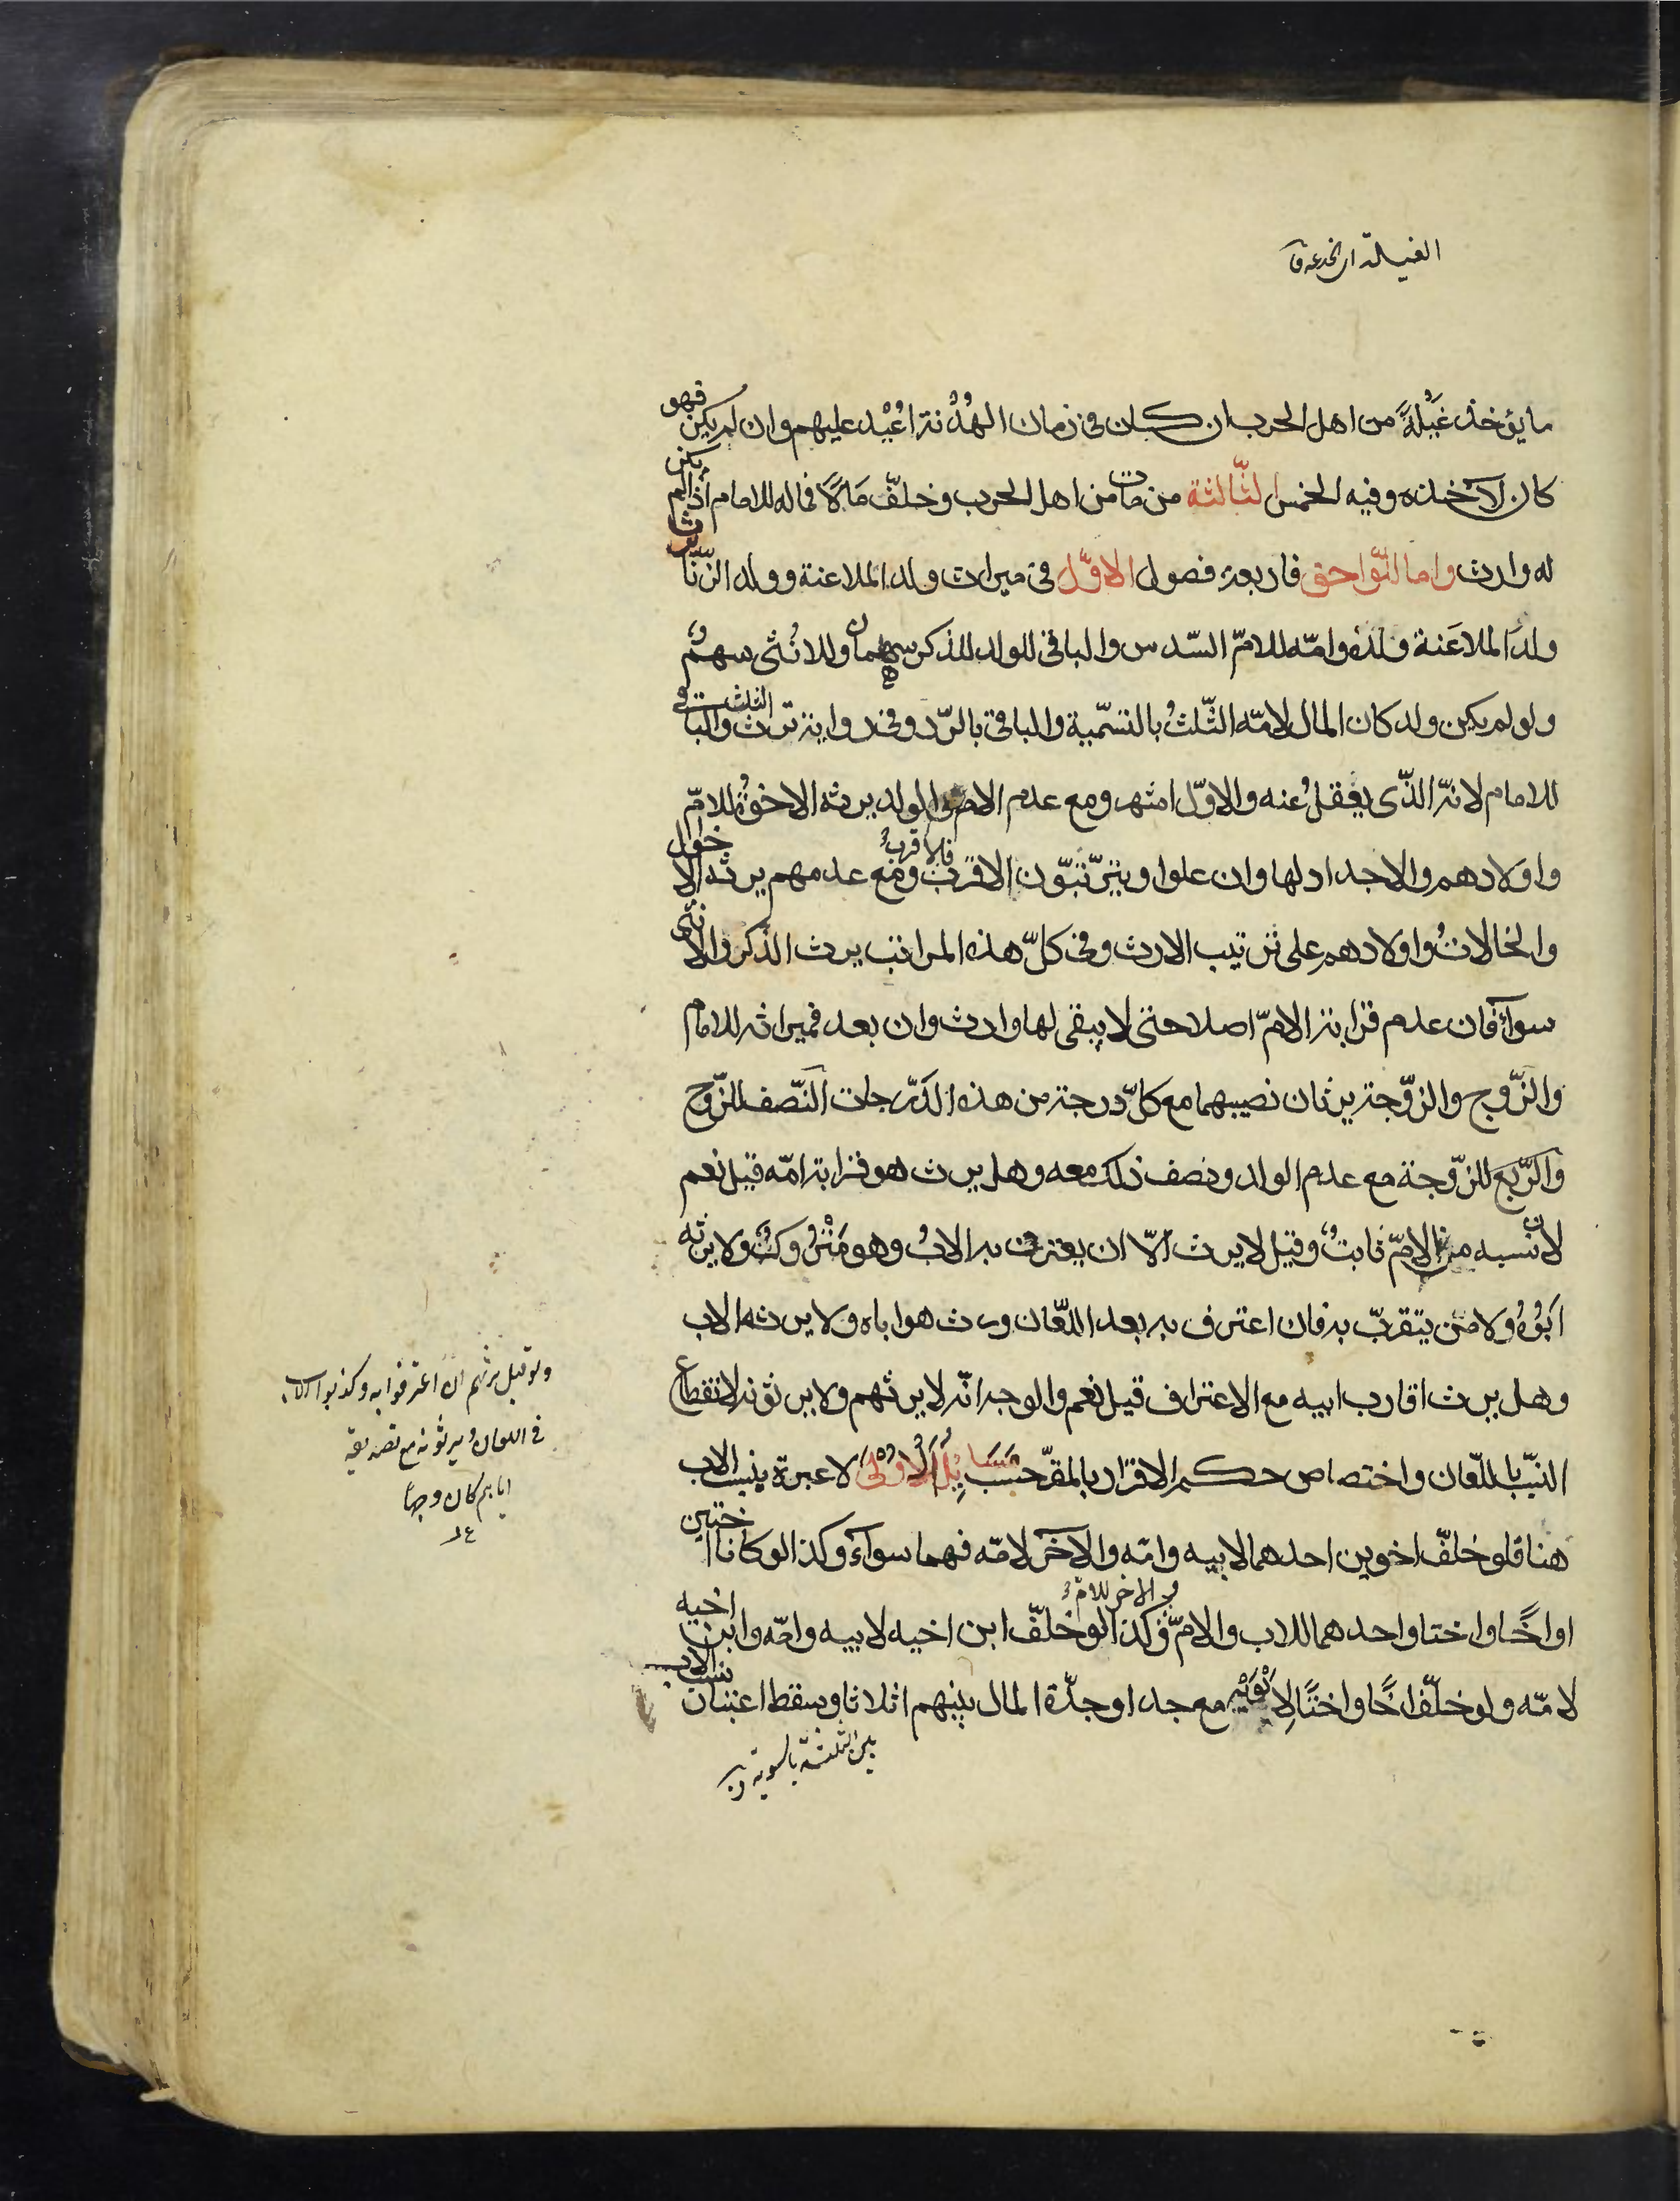 الغيلة اى الخدعة ق
ما يؤخذ غيلةً من اهل الحرب ان كان فى زمان الهُدْنة اُعيْد عليهم وان لم يكن فهو
كان لآخذه وفيه الخمس الثّالثة من مات من اهل الحرب وخلّف مَالاً فماله للامام اذا لم يكن
له وارث واما اللّواحق فاربعة فصول الاوّل فى ميراث ولد الملاعنة وولد الزّنا يرث
ولدَ الملاعَنة ولدُه وامّه للامّ السّدس والباقى للولد للذكر سهمان وللانُثى سهمٌ
ولو لم يكن ولد كان المال لامّه الثّلثُ بالتّسمية والباقى بالرّد وفى رواية ترث الثلث والباقى
للامام لانّه الذّى يعقلُ عنه والاوّل اشهر ومع عدم الام والولد يرثه الاخوةُ للامّ
واولادهم والاجداد لها وان علوا ويترّتبّون الاقرب فالاقربُ ومع عدمهم يرثه الاخوال
والخالاتُ واولادهم على ترتيب الارث وفى كلّ هذه المراتب يرث الذّكر والانثى
سوآءً فان عدم قرابة الامّ اصلا حتى لا يبقى لها وارث وان بعد فميراثه للامام
والزّوج والزّوّجة يرثان نصيبهما مع كلّ درجة من هذه الدّرجات النّصف للزّوج
والرّبع للزّوّجة مع عدم الولد ونصف ذلك معه وهل يرث هو قرابة امّه قيل نعم
لان نسبه من الامّ ثابتٌ وقيل لا يرث الاّ ان يعترف به الابُ وهو مَتْرُوكٌ ولا يرثه
ابَوُهُ ولا من يتقرّب به فان اعترف به بعد اللّعان ورث هو اباه ولا يرثه الاب
وهل يرث اقارب ابيه مع الاعتراف قيل نعم والوجه انّه لا يرثهم ولا يرثونه لانقطاع
النّسب باللّعان واختصاص حكم الاقرار بالمقرّ حسب مَسَايُلُ الْاُوْلىَ لا عبرة بنسب الاب
هنا فلو خلّف اخوين احدهما لابيه وامّه والآخر لامّه فهما سوآء وكذا لو كانا اختين
او اخًا واختا واحدهما للاب والامّ والاخر للامّ وكذا لو خلّف ابن اخيه لابيه وامّه وابن اخيه
لامّه ولو خلّف اخًا واختًا لِابَوَيْهِ مع جد او جدّة المال بينهم اثلاثا وسقط اعتبار نسب الاب
بين الثلثة بالسوية ق
ولو قيل يرثهم ان اعترفوا به وكذبوا الاب
فى اللعان ويرثونه مع تصديقه
اياهم كان وجهاً
عد